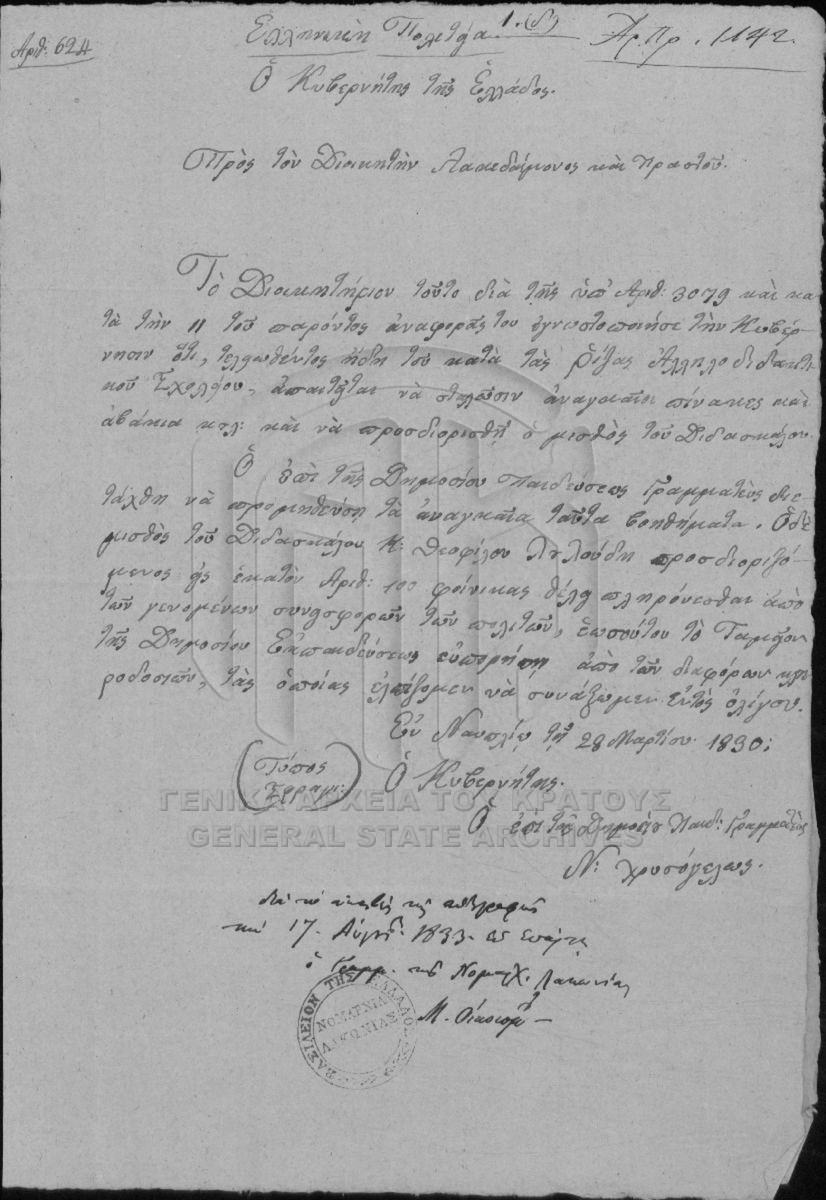 Ἀριθ: 624
Ἑλληνικὴ Πολιτεία 1.
Ἀρ. Πρ. 1142.
Ὁ Κυβερνήτης τῆς Ἑλλάδος.
Πρὸς τὸν Διοικητὴν Λακεδαίμονος καὶ Πραστοῦ.
Τὸ Διοικητήριον τοῦτο διὰ τῆς ὑπ' Ἀριθ: 3079 καὶ κα-
τὰ τὴν 11 τοῦ παρόντος ἀναφορᾶς του ἐγνωστοποίησε τὴν Κυβέρ-
νησιν ὅτι, τελειωθέντος ἤδη τοῦ κατὰ τὰς Ῥίζας Ἀλληλοδιδακτι-
κοῦ Σχολείου, ἀπαιτεῖται νὰ σταλῶσιν ἀναγκαῖοι πίνακες καὶ
ἀβάκια κτλ: καὶ νὰ προσδιορισθῇ ὁ μισθὸς τοῦ Διδασκάλου.
Ὁ ἐπὶ τῆς Δημοσίου Παιδεύσεως Γραμματεὺς διε-
τάχθη νὰ προμηθεύσῃ τὰ ἀναγκαῖα ταῦτα βοηθήματα. Ὁ δὲ
μισθὸς τοῦ Διδασκάλου Κ: Θεοφίλου προσδιοριζό-
μενος εἰς ἑκατὸν Ἀριθ: 100 φοίνικας θέλει πληρόνεσθαι ἀπὸ
τῶν γενομένων συνεισφορῶν τῶν πολιτῶν, ἑωσοῦ τὸ Ταμεῖον
τῆς Δημοσίου Ἐκπαιδεύσεως εὐπορήσῃ ἀπὸ τῶν διαφόρων κλη-
ροδοσιῶν, τὰς ὁποίας ἐλπίζομεν νὰ συνάξωμεν ἐντὸς ὀλίγου.
Ἐν Ναυπλίῳ τῇ 28 Μαρτίου 1830:
(Τύπος
Σφραγι:)
Ὁ Κυβερνήτης.
Ὁ ἐπὶ τῆς Δημοσίου Παιδ: Γραμματεὺς
Ν: Χρυσόγελως.
ΓΕΝΙΚΑ ΑΡΧΕΙΑ ΤΟΥ ΚΡΑΤΟΥΣ
GENERAL STATE ARCHIVES
διὰ τὸ ἀκριβὲς τῆς ἀντιγραφῆς
17. Αὐγούς. 1833. ἐν Σπάρτῃ
ὁ Γραμμ. τῆς Νομαρχ. Λακωνίας
Μ. Οἰκονομ
ΒΑΣΙΛΕΙΟΝ ΤΗΣ ΕΛΛΑΔΟΣ
ΝΟΜΑΡΧΙΑ
ΛΑΚΩΝΙΑΣ